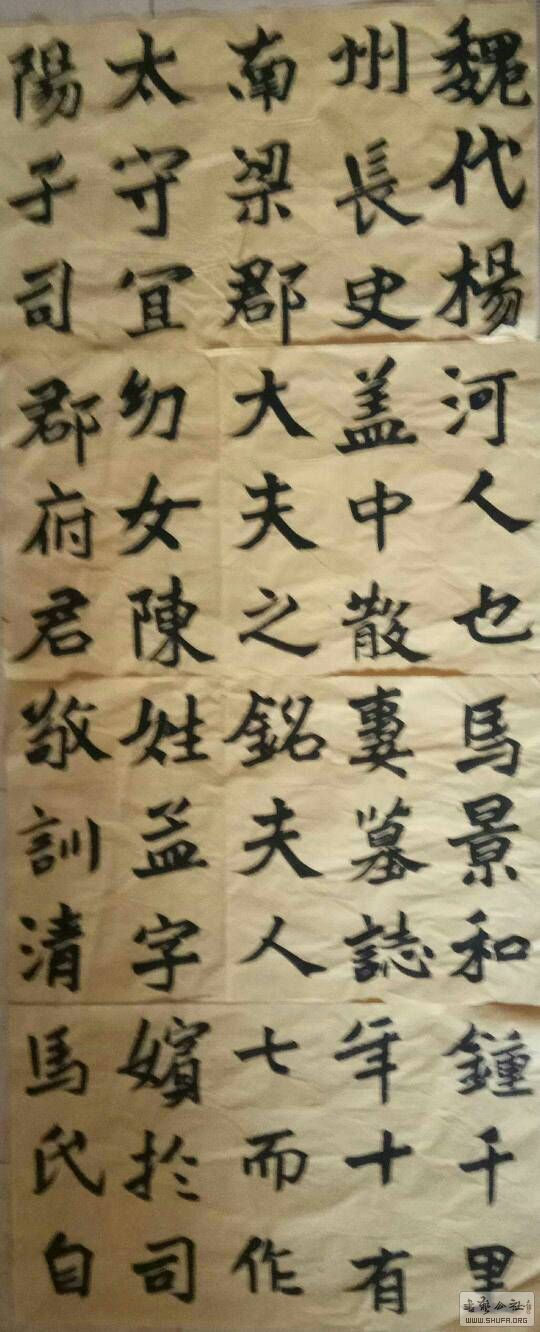 魏代楊
州長史
南梁郡
太守冝
陽子司
河人也
盖中散
大夫之
幼女陳
郡府君
馬景和
妻墓誌
銘夫人
姓孟字
敬訓清
鍾千里
年十有
七而作
嬪於司
馬氏自
书艺公社
WWW.SHUFA.ORG